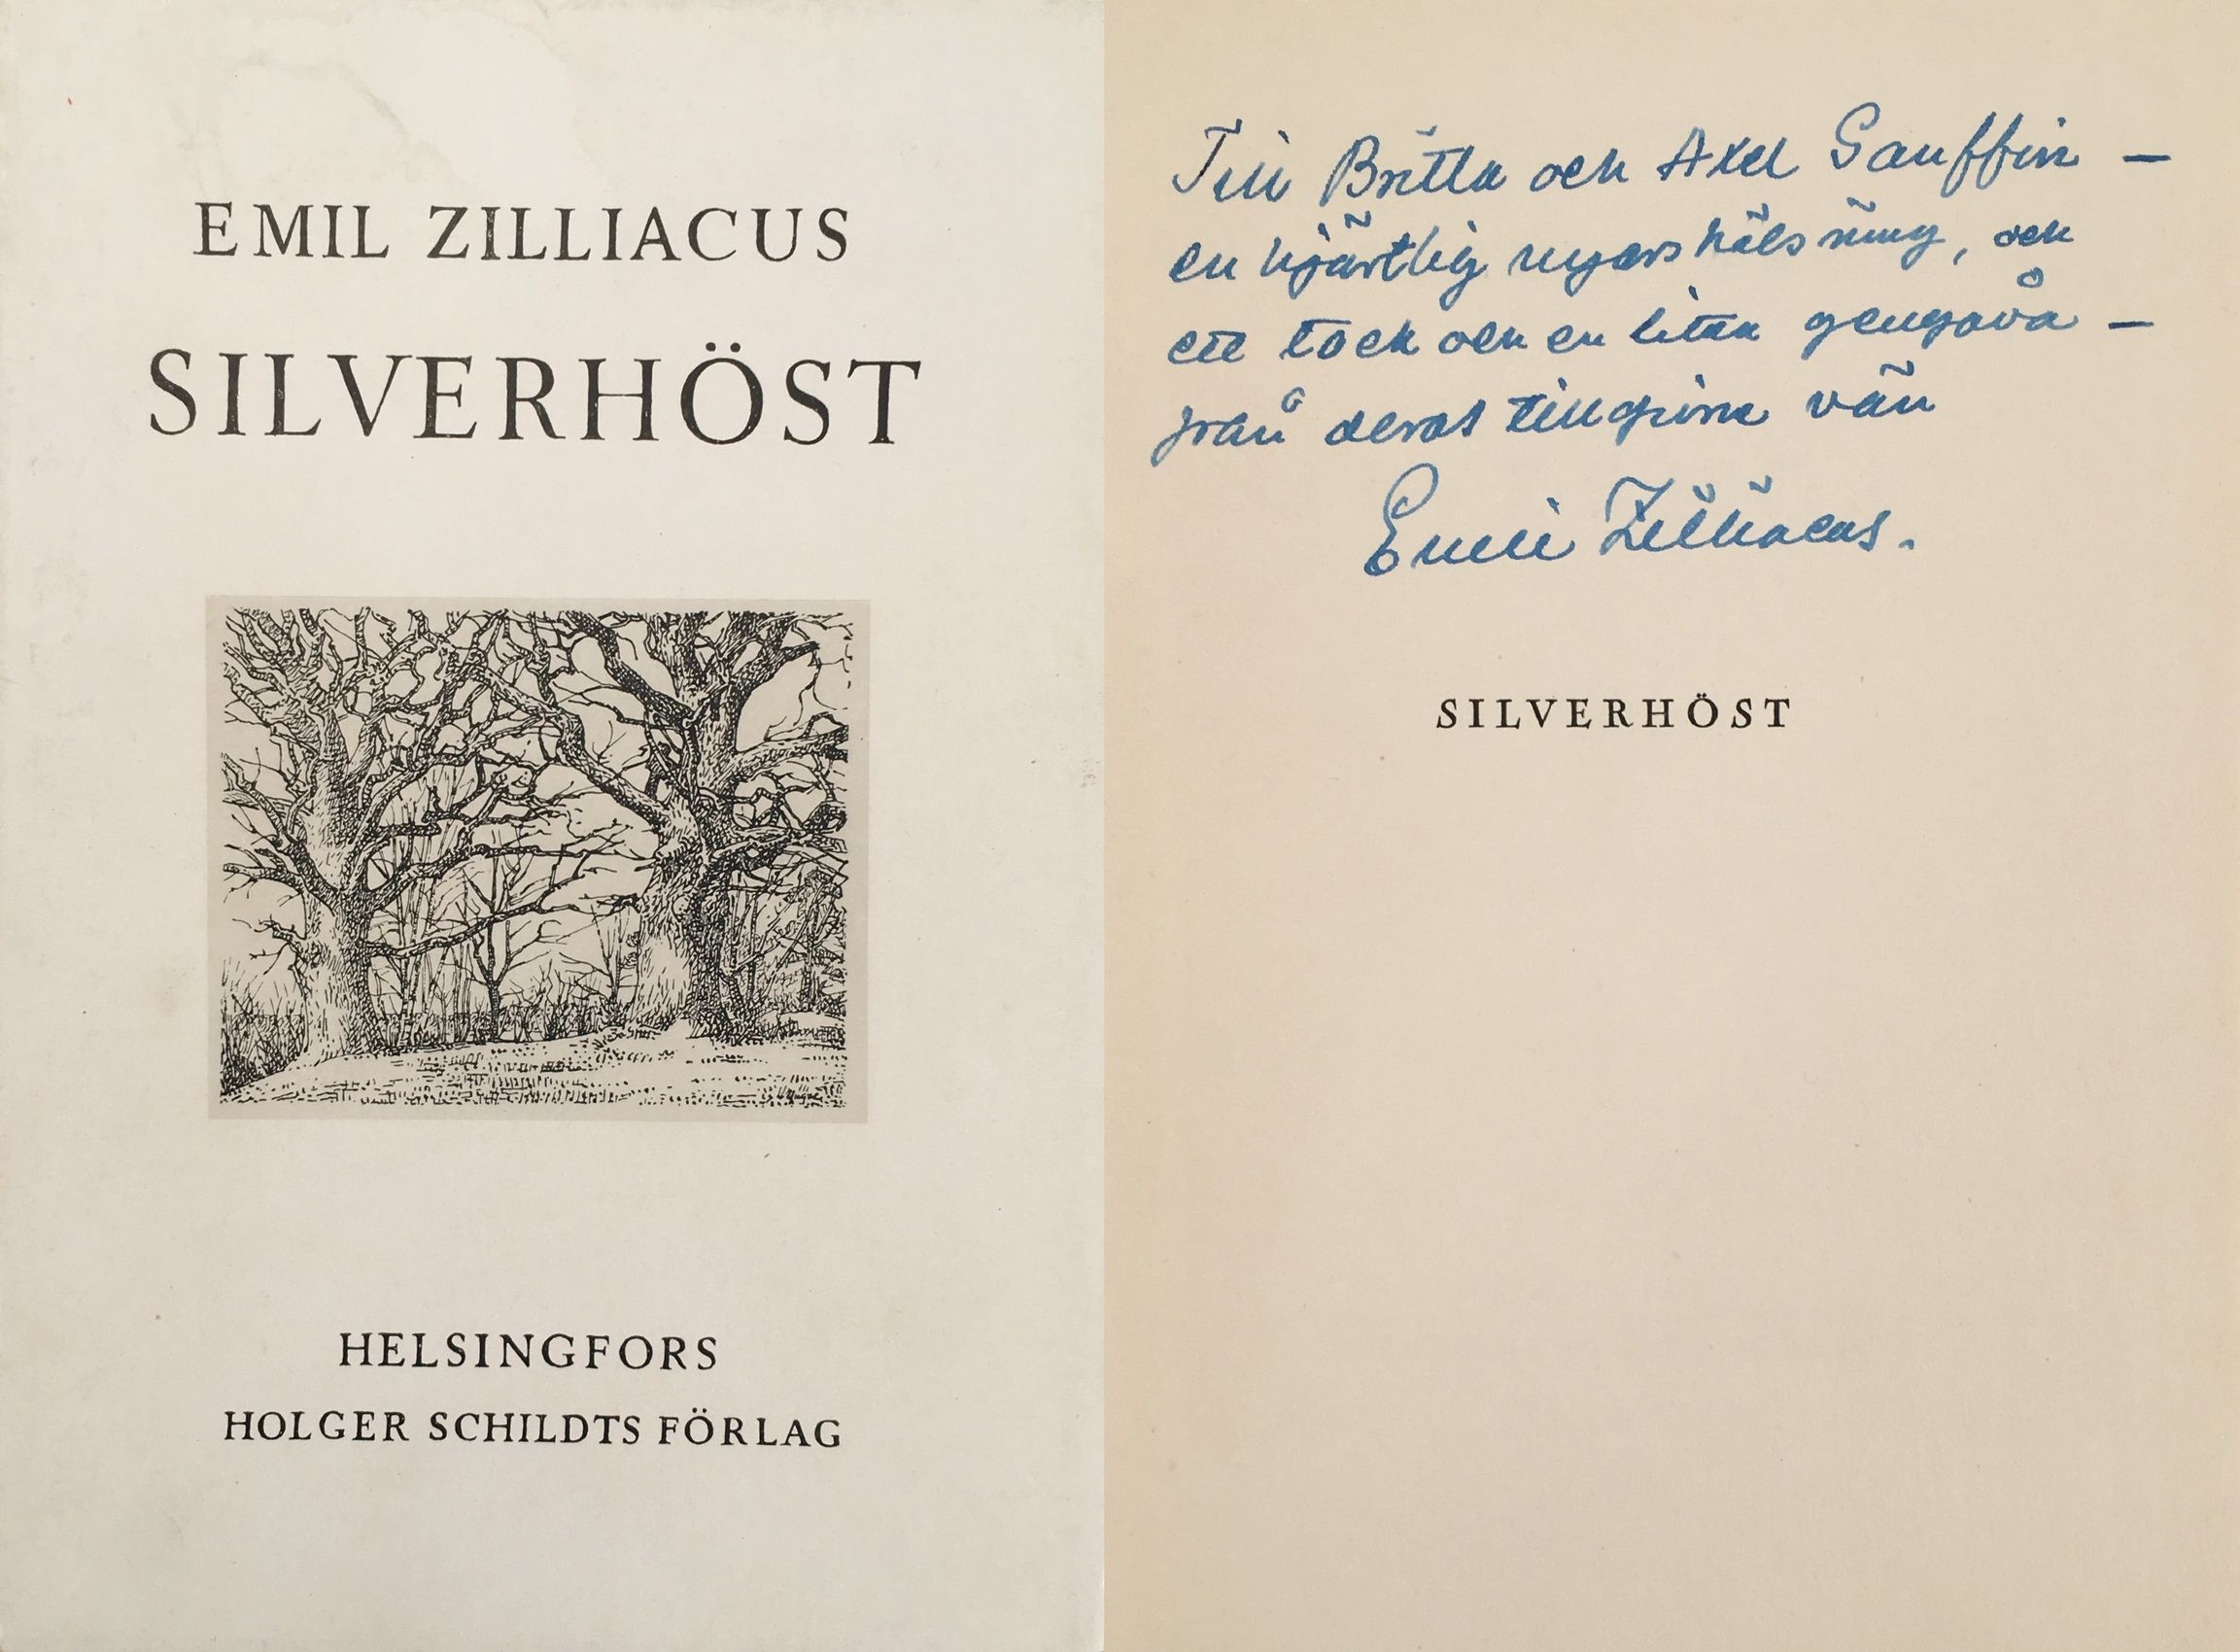 EMIL ZILLIACUS
SILVERHÖST
HELSINGFORS
HOLGER SCHILDTS FÖRLAG
Till Britta och Axel Gauffin —
en hjärtlig nyårshälsning, och
ett tack och en liten gengåva —
från deras tillgivne vän
Emil Zilliacus.
SILVERHÖST